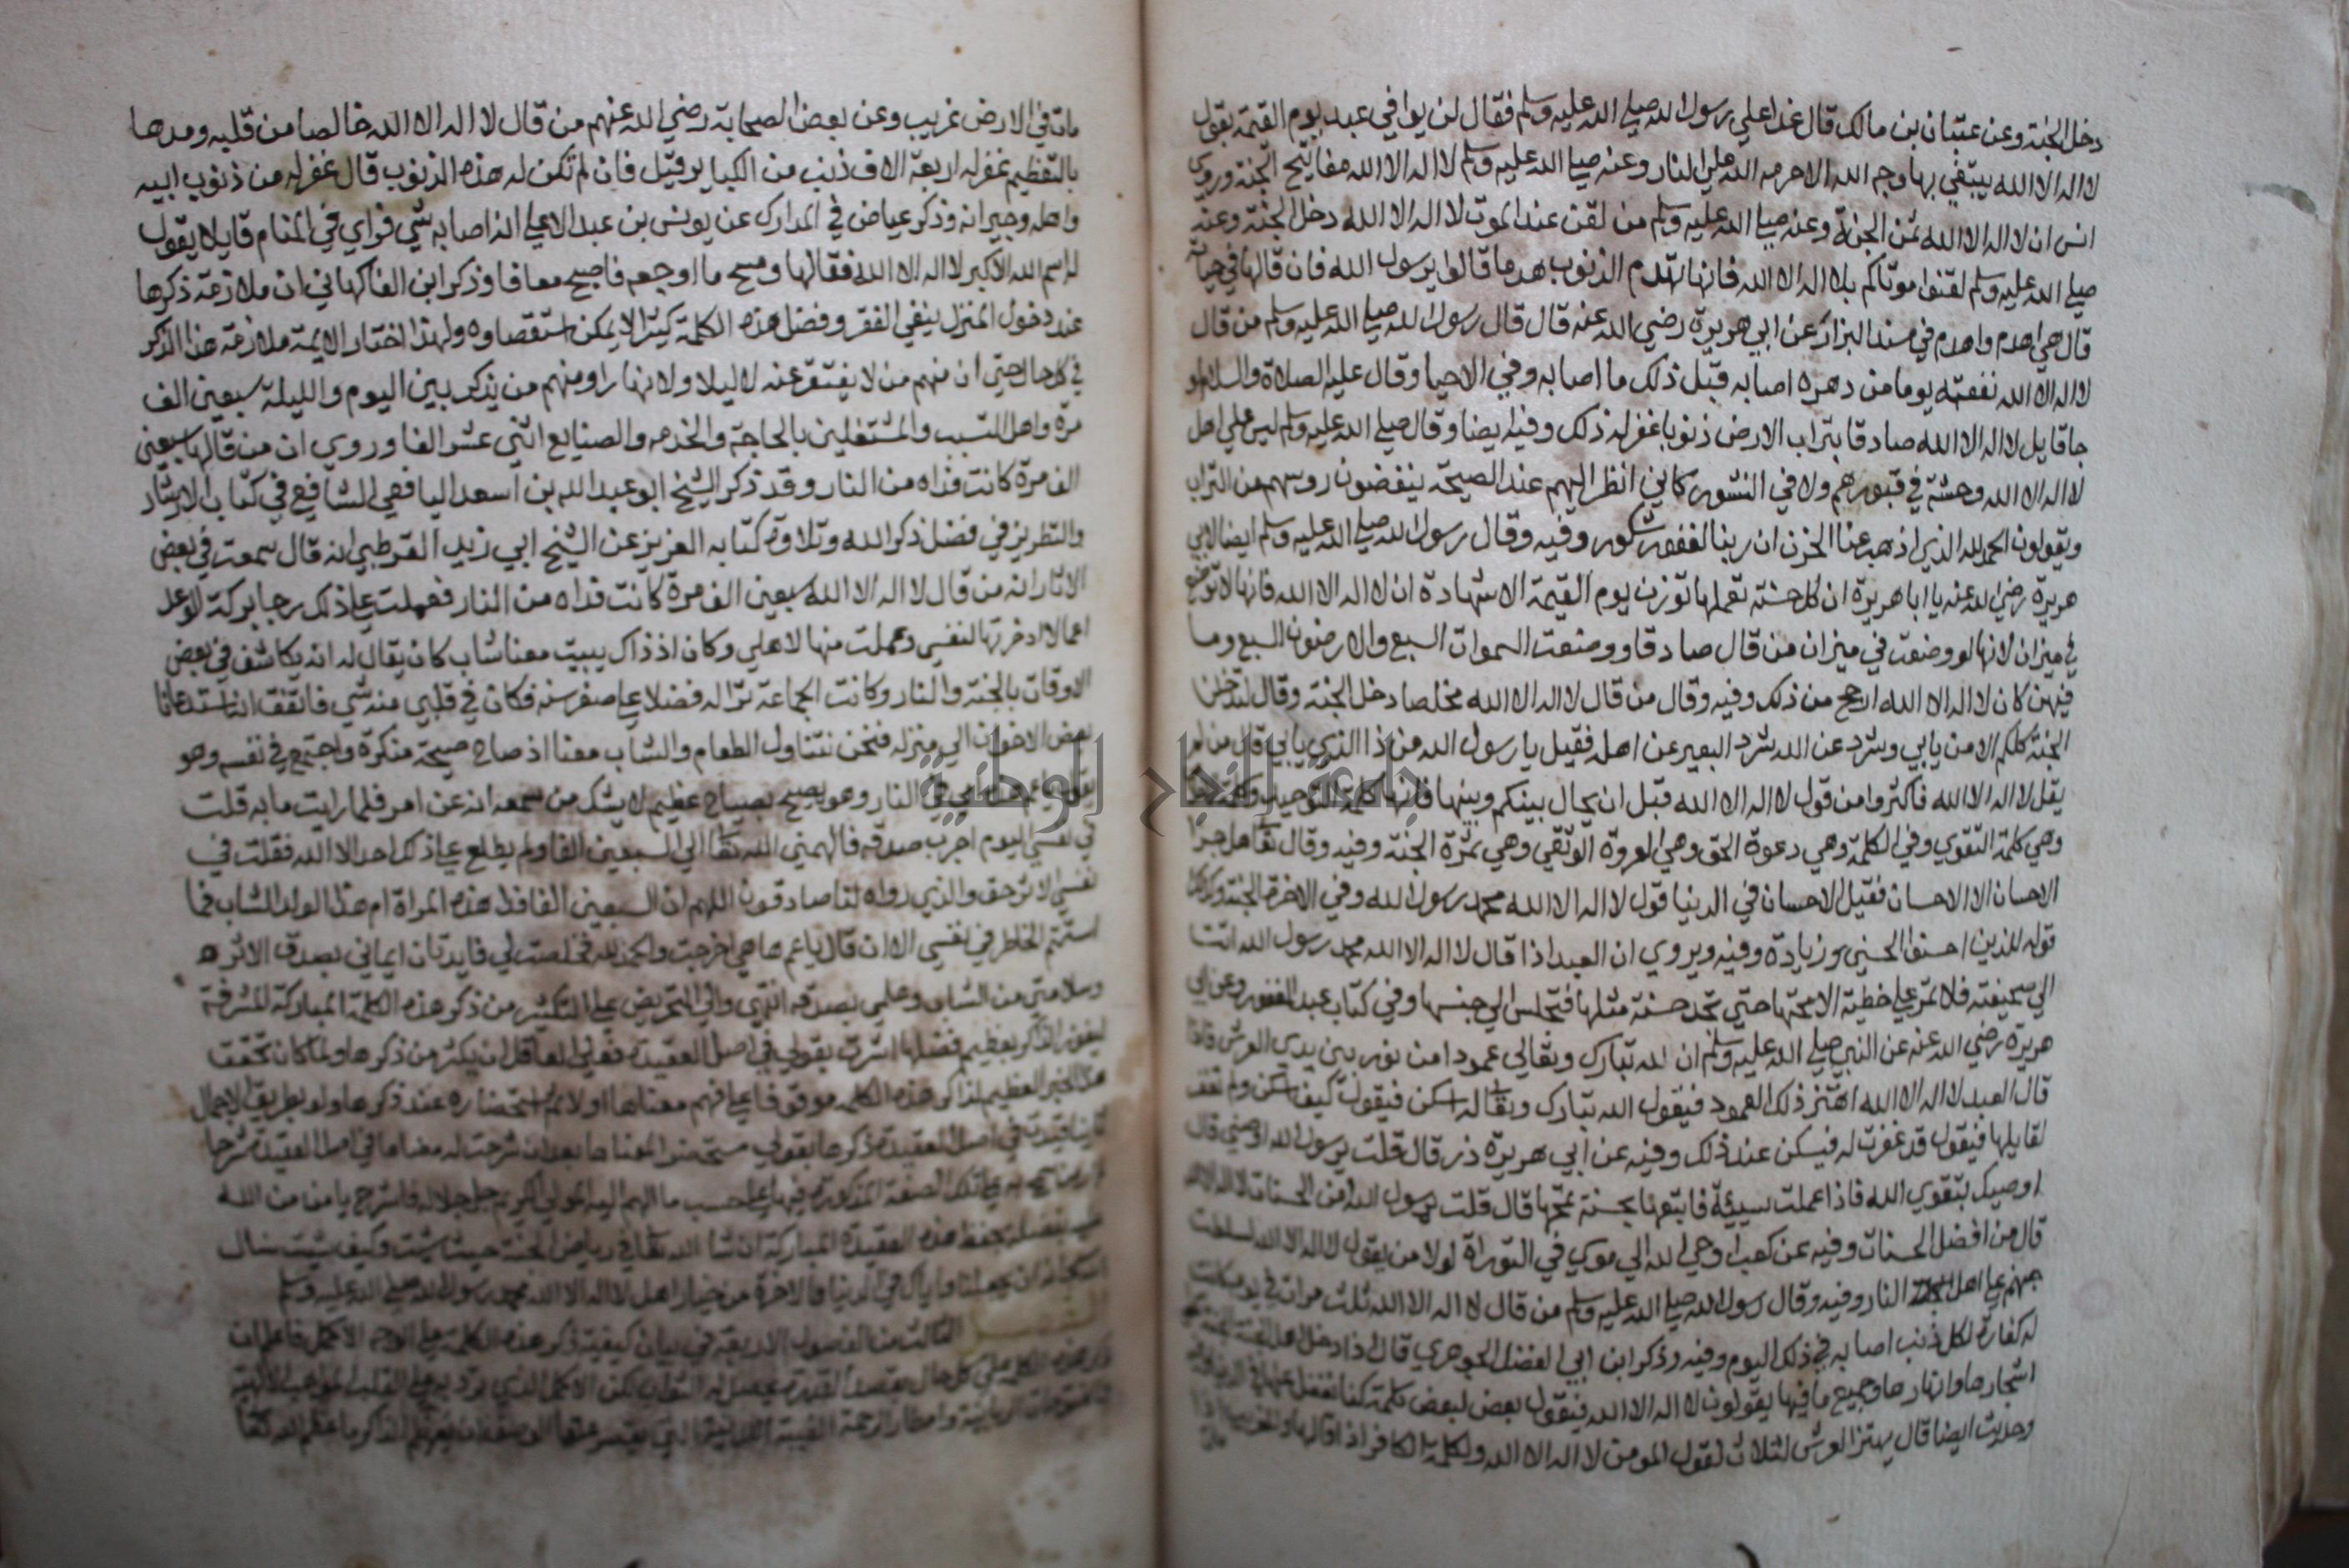 دخل الجنة وعن عتبان بن مالك قال غدا علي رسول الله صلي الله عليه وسلم فقال لن يوافي عبد يوم القيمة بقول
لا اله الا الله يبتغي بها وجه الله الا حرمه الله علي النار وعنه صلي الله عليه وسلم لا اله الا الله مفاتيح الجنة وروي
انس ان لا اله الا الله ثمن الجنة وعنه صلي الله عليه وسلم من لقن عند الموت لا اله الا الله دخل الجنة وعنه
صلي الله عليه وسلم لقنوا موتاكم بلا اله الا الله فانها تهدم الذنوب هدما قالوا يرسول الله فان قالها في حياته
قال هي اهدم واهدم في مسند البزار عن ابي هريرة رضي الله عنه قال قال رسول الله صلي الله عليه وسلم من قال
لا اله الا الله نفعته يوما من دهره اصابه قبل ذلك ما اصابه وفي الاحيا وقال عليه الصلاة والسلام لو
جا قايل لا اله الا الله صادقا بتراب الارض ذنوبا غفر له ذلك وفيه ايضا وقال صلي الله عليه وسلم ليس علي اهل
لا اله الا الله وحشة في قبورهم ولا في النشور كاني انظر اليهم عند الصيحة ينفضون روسهم من التراب
ويقولون الحمد لله الذي اذهب عنا الحزن ان ربنا لغفور شكور وفيه وقال رسول الله صلي الله عليه وسلم ايضا لابي
هريرة رضي الله عنه يا ابا هريرة ان كل حسنة تعملها توزن يوم القيمة الا شهادة ان لا اله الا الله فانها لا توضع
في ميزان لانها لو وضعت في ميزان من قال صادقا ووضعت السموات السبع والارضون السبع وما
فيهن كان لا اله الا الله ارجح من ذلك وفيه وقال من قال لا اله الا الله مخلصا دخل الجنة وقال لتدخلن
الجنة كلكم الا من يابي وشرد عن الله شرد البعير عن اهله فقيل يا رسول الله من ذا الذي يابي قال من لم
يقل لا اله الا الله فاكثروا من قول لا اله الا الله قبل ان يحال بينكم وبينها فانها كلمة التوحيد
وهي كلمة التقوي وفي الكلمة وهي دعوة الحق وهي العروة الوثقي وهي ثمرة الجنة وفيه وقال تعا هل جزا
الاحسان الا الاحسان فقيل الاحسان في الدنيا قول لا اله الا الله محمد رسول الله وفي الاخرة الجنة وكذا
قوله للذين احسنوا الحسني وزيادة وفيه ويروي ان العبد اذا قال لا اله الا الله محمد رسول الله اتت
الي صحيفته فلا تمر علي خطية الا محتها حتي تجد حسنة مثلها فتجلس الي جنبها وفي كتاب عبد الغفور وعن ابي
هريرة رضي الله عنه عن النبي صلي الله عليه وسلم ان لله تبارك وتعالي عمودا من نور بين يدي العرش فاذا
قال العبد لا اله الا الله اهتز ذلك العمود فيقول الله تبارك وتعا له اسكن فيقول كيف اسكن ولم تغفر
لقايلها فيقول قد غفرت له فيسكن عند ذلك وفيه عن ابي هريرة ذر قال قلت يرسول الله اوصني قال
اوصيك بتقوي الله فاذا عملت سيئة فاتبعها بحسنة تمحها قال قلت يرسول الله امن الحسنات لا اله الا الله
قال من افضل الحسنات وفيه عن كعب اوحي الله الي موسي في التوراة لولا من يقول لا اله الا الله لسلطت
جهنم علي اهل النار وفيه وقال رسول الله صلي الله عليه وسلم من قال لا اله الا الله ثلث مرات في يومه كانت
له كفارة لكل ذنب اصابه في ذلك اليوم وفيه وذكر ابن ابي الفضل الجوهري قال اذا دخل اهل الجنة الجنة
اشجارها وانهارها وجميع ما فيها يقولون لا اله الا الله فيقول بعض لبعض كلمة كنا نغفل عنها في الدنيا
وحديث ايضا قال يهتز العرش لثلاث لقول المومن لا اله الا الله ولكلمة الكافر اذا قالها وللغريب اذا
مات
مات في الارض غريب وعن بعض الصحابة رضي الله عنهم من قال لا اله الا الله خالصا من قلبه ومدها
بالتعظيم غفر له اربعة الاف ذنب من الكباير قيل فان لم تكن له هذه الذنوب قال غفر له من ذنوب ابيه
واهله وجيرانه وذكر عياض في المدارك عن يونس بن عبد الاعلي انه اصابه شي فراي في المنام قايلا يقول
له اسم الله الاكبر لا اله الا الله فقالها ومسح ما اوجعه فاصبح معافا وذكر ابن الفاكهاني ان ملازمة ذكرها
عند دخول المنزل ينفي الفقر وفضل هذه الكلمة كثير لا يمكن استقصاوه ولهذا اختار الايمة ملازمة هذا الذكر
في كل حال حتي ان منهم من لا يفتر عنه لا ليلا ولا نهارا ومنهم من يذكر بين اليوم والليلة سبعين الف
مرة واهل التسبب والمشتغلين بالحاجة والخدمه والصنايع اثني عشر الفا وروي ان من قالها سبعين
الف مرة كانت فداه من النار وقد ذكر الشيخ ابو عبد الله بن اسعد اليافعي الشافعي في كتاب الارشاد
والتطريز في فضل ذكر الله وتلاوة كتابه العزيز عن الشيخ ابي زيد القرطبي انه قال سمعت في بعض
الاثار انه من قال لا اله الا الله سبعين الف مرة كانت فداه من النار فعملت علي ذلك رجا بركة الوعد
اعمالا ادخرتها لنفسي وعملت منها لاهلي وكان اذ ذاك يبيت معنا شاب كان يقال له انه يكاشف في بعض
الاوقات بالجنة والنار وكانت الجماعة ترا له فضلا علي صغر سنه فكان في قلبي منه شي فاتفق ان استدعانا
بعض الاخوان الي منزله فنحن نتناول الطعام والشاب معنا اذ صاح صيحة منكرة واجتمع في نفسه وهو
يقول يا عم هذه امي في النار وهو يصيح بصياح عظيم لا يشك من سمعه انه عن امر فلما رايت ما به قلت
في نفسي اليوم اجرب صدقه فالهمني الله تعا الي السبعين الفا ولم يطلع علي ذلك احد الا الله فقلت في
نفسي الاثر حق والذي رواه لنا صادقون اللهم ان السبعين الفا فدا هذه المراة ام هذا الولد الشاب فما
استتم الخاطر في نفسي الا ان قال يا عم ها هي اخرجت والحمد لله فحصلت لي فايدتان ايماني بصدق الاثر
وسلامتي من الشاب وعلمي بصدقه انتهي والي التحريض علي التكثير من ذكر هذه الكلمة المباركة المشرفة
ليفوز الذاكر بعظيم فضلها اشرت بقولي في اصل العقيدة فعلي العاقل ان يكثر من ذكرها ولما كان تحقق
هذا الخير العظيم لذاكر هذه الكلمه موقوفا علي فهم معناها اولا ثم استحضاره عند ذكرها ولو بطريق الاجمال
في اصل العقيدة ذكرها بقولي مستحضرا لمعناها بعد ان شرحت له معناها في اصل العقيدة شرحا
علي تلك الصفة المذكورة فيها علي حسب ما الهم اليه المولي الكريم جل جلاله فاشرح يا من من الله
عليه بفضله بحفظ هذه العقيدة المباركة ان شا الله تعا في رياض الجنة حيث شيت وكيف شيت نسال
الله تعا ان يجعلنا واياك في الدنيا والاخرة من خيار اهل لا اله الا الله محمد رسول الله صلي الله عليه وسلم
الفصل الثالث من الفصول الاربعة في بيان كيفية ذكر هذه الكلمة علي الوجه الاكمل فاعلم ان
ذكر هذه الكلمة علي كل حال بقصد القربة يحصل له الثواب لكن الاكمل الذي ترد به علي القلب المواهب الالهية